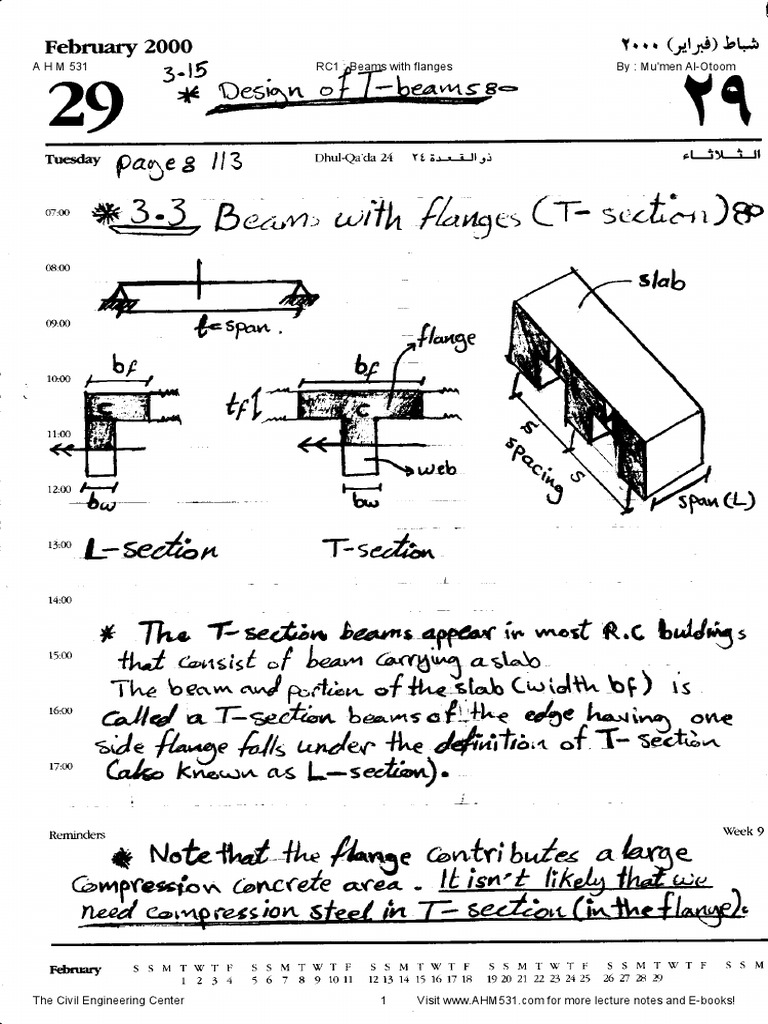 February 2000
شباط (فبراير) ٢٠٠٠
A H M 531
RC1 : Beams with flanges
By : Mu'men Al-Otoom
29
3-15
* Design of T-beams:-
٢٩
Tuesday
page: 113
Dhul-Qa'da 24 ذو القعدة ٢٤
الثلاثاء
07:00
* 3.3 Beams with flanges (T-section):-
08:00
slab
09:00
l = span.
flange
10:00
bf
bf
tf
c
c
11:00
web
S
S
spacing
12:00
bw
bw
span (L)
13:00
L-section
T-section
14:00
* The T-section beams appear in most R.C buldings
15:00
that consist of beam carrying a slab
The beam and portion of the slab (width bf) is
16:00
called a T-section beams of the edge having one
side flange falls under the definition of T-section
17:00
(also known as L-section).
Reminders
Week 9
* Note that the flange contributes a large
compression concrete area. It isn't likely that we
need compression steel in T-section (in the flange).
February
S S M T W T F S S M T W T F S S M T W T F S S M T W T F S S M T W T F S S M
1 2 3 4 5 6 7 8 9 10 11 12 13 14 15 16 17 18 19 20 21 22 23 24 25 26 27 28 29
The Civil Engineering Center
1
Visit www.AHM531.com for more lecture notes and E-books!